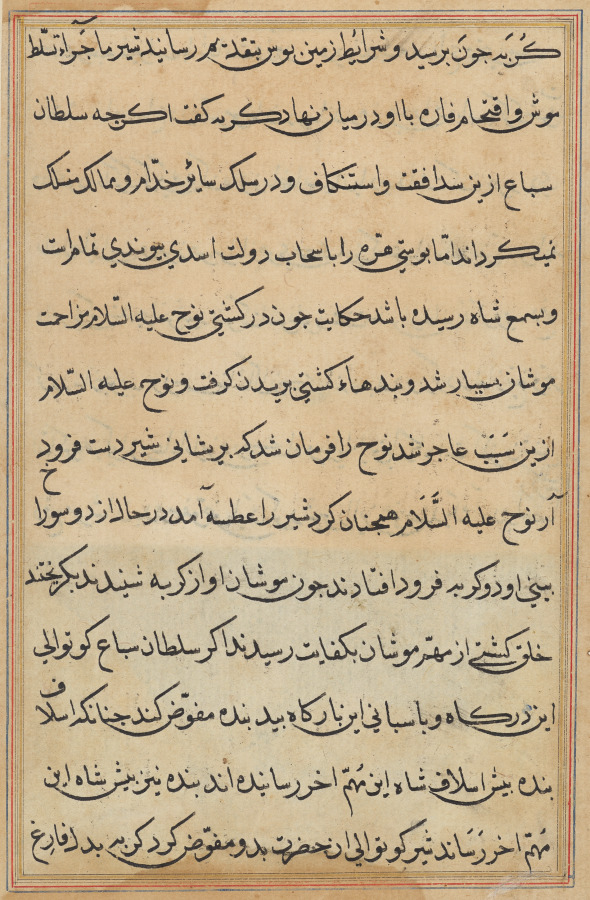 گربه جون برسید و شرایط زمین بوس بتقدیم رسانید شیر ماجراء تسلط
موش و اقتحام فاره با او در میان نهاد گربه گفت اکرجه سلطان
سباع ازین سدافقت و استنکاف و در سلک سائر خدّام و ممالک منسلک
نمیکرداند امّا بوستی هرّه را با سحاب دولت اسدی بیوندی تمامست
و بسمع شاه رسیده باشد حکایت جون در کشتی نوح علیه السّلام مزاحمت
موشان بسیار شد و بندهاء کشتی بریدن کرفت و نوح علیه السّلام
ازین سَبَبْ عاجز شد نوح را فرمان شد که بر بشانی شیر دست فرود
آر نوح علیه السَّلَام همجنان کرد شیر را عطسه آمد در حال از دو سوراخ
بینی او دو کربه فرود افتادند جون موشان اواز کربه شنیدند بکریختند
خلق کشتی از مهمّ موشان بکفایت رسیدند اکر سلطان سباع کوتوالی
این درکاه و باسبانی این بارکاه ببد بنده مفوّض کند جنانکه اسلاف
بنده بیش اسلاف شاه این مُهمّ اخر رسانیده اند بنده نیز بیش شاه این
مُهمّ اخر رَسَاند شیر کوتوالی ان حضرت بدو مفوّض کرد کربه بدل فارغ